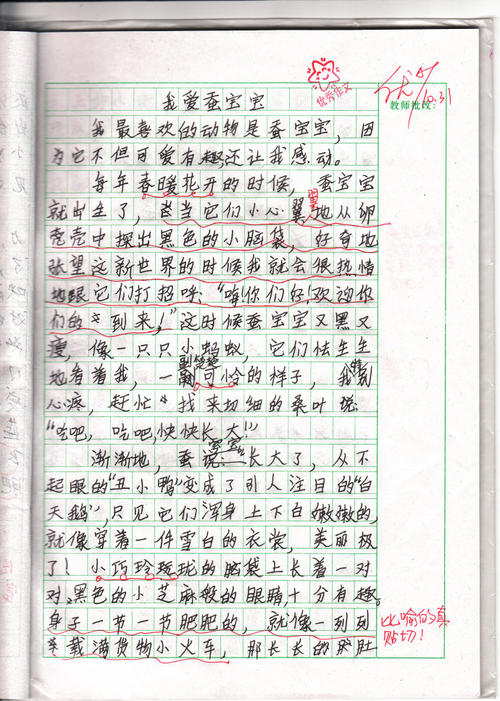 优秀作文
优 10.31
教师批改:
我爱蚕宝宝
我最喜欢的动物是蚕宝宝,因
为它不但可爱有趣,还让我感动。
每年春暖花开的时候,蚕宝宝
就出生了,当它们小心翼翼地从卵
壳壳中探出黑色的小脑袋,好奇地
张望这新世界的时候我就会很热情
地跟它们打招呼:“嗨!你们好!欢迎你
们的到来!”这时候蚕宝宝又黑又
瘦,像一只只小蚂蚁,它们怯生生
地看着我,一副可怜的样子,我特别
心疼,赶忙找来切细的桑叶说:
“吃吧,吃吧,快快长大!”
渐渐地,蚕宝宝长大了,从不
起眼的“丑小鸭”变成了引人注目的“白
天鹅”,只见它们浑身上下白嫩嫩的,
就像穿着一件雪白的衣裳,美丽极
了!小巧玲珑的脑袋上长着一对
对黑色的小芝麻般的眼睛,十分有趣。
身子一节一节肥肥的,就像一列列
载满货物小火车,那长长的
比喻的真
贴切!